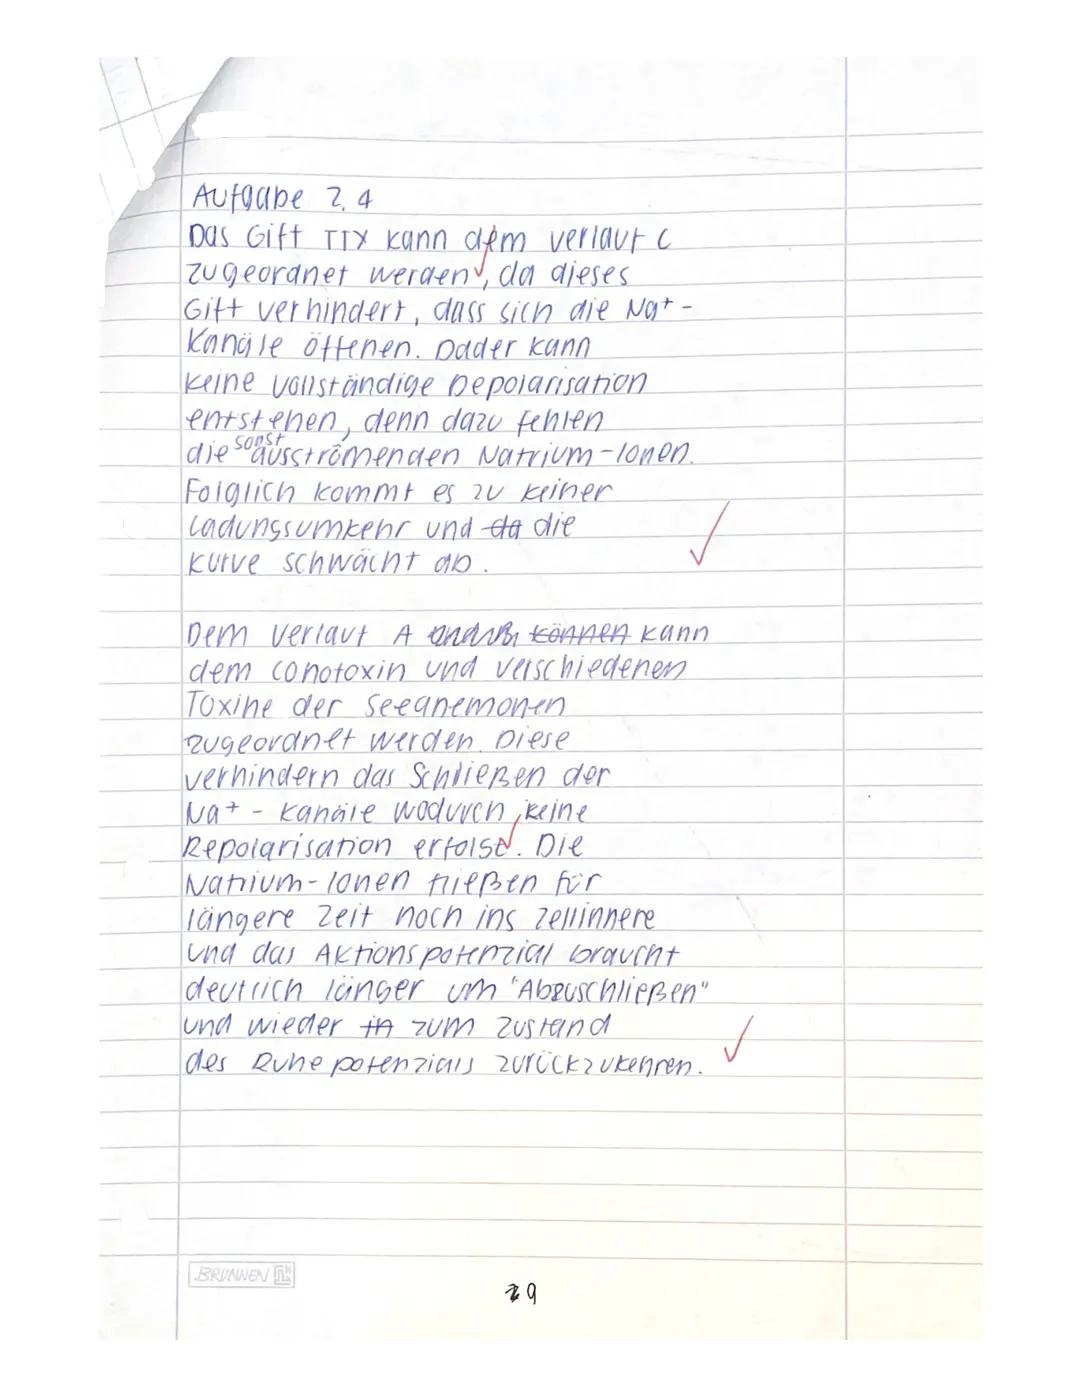 Aufgabe 2.4
Das Gift TTX kann dem verlauf C
zugeordnet werden, da dieses
Gift verhindert, dass sich die Na+-
Kanäle öffenen. Dader kann
keine vollständige Depolarisation
entstehen, denn dazu fehlen
die sonst ausströmenden Natrium-Ionen.
Folglich kommt es zu keiner
Ladungsumkehr und da die
kurve schwächt ab.
Dem verlauf A können kann
dem conotoxin und verschiedenen
Toxine der Seeanemonen
zugeordnet werden. Diese
verhindern das Schließen der
Na+ - kanäle wodurch, keine
Repolarisation erfolgt. Die
Natrium-Ionen fließen für
längere Zeit noch ins Zellinnere
und das Aktionspotenzial braucht
deutlich länger um "Abzuschließen"
und wieder in zum Zustand
des Ruhepotenzials zurückzukehren.
BRUNNEN
9